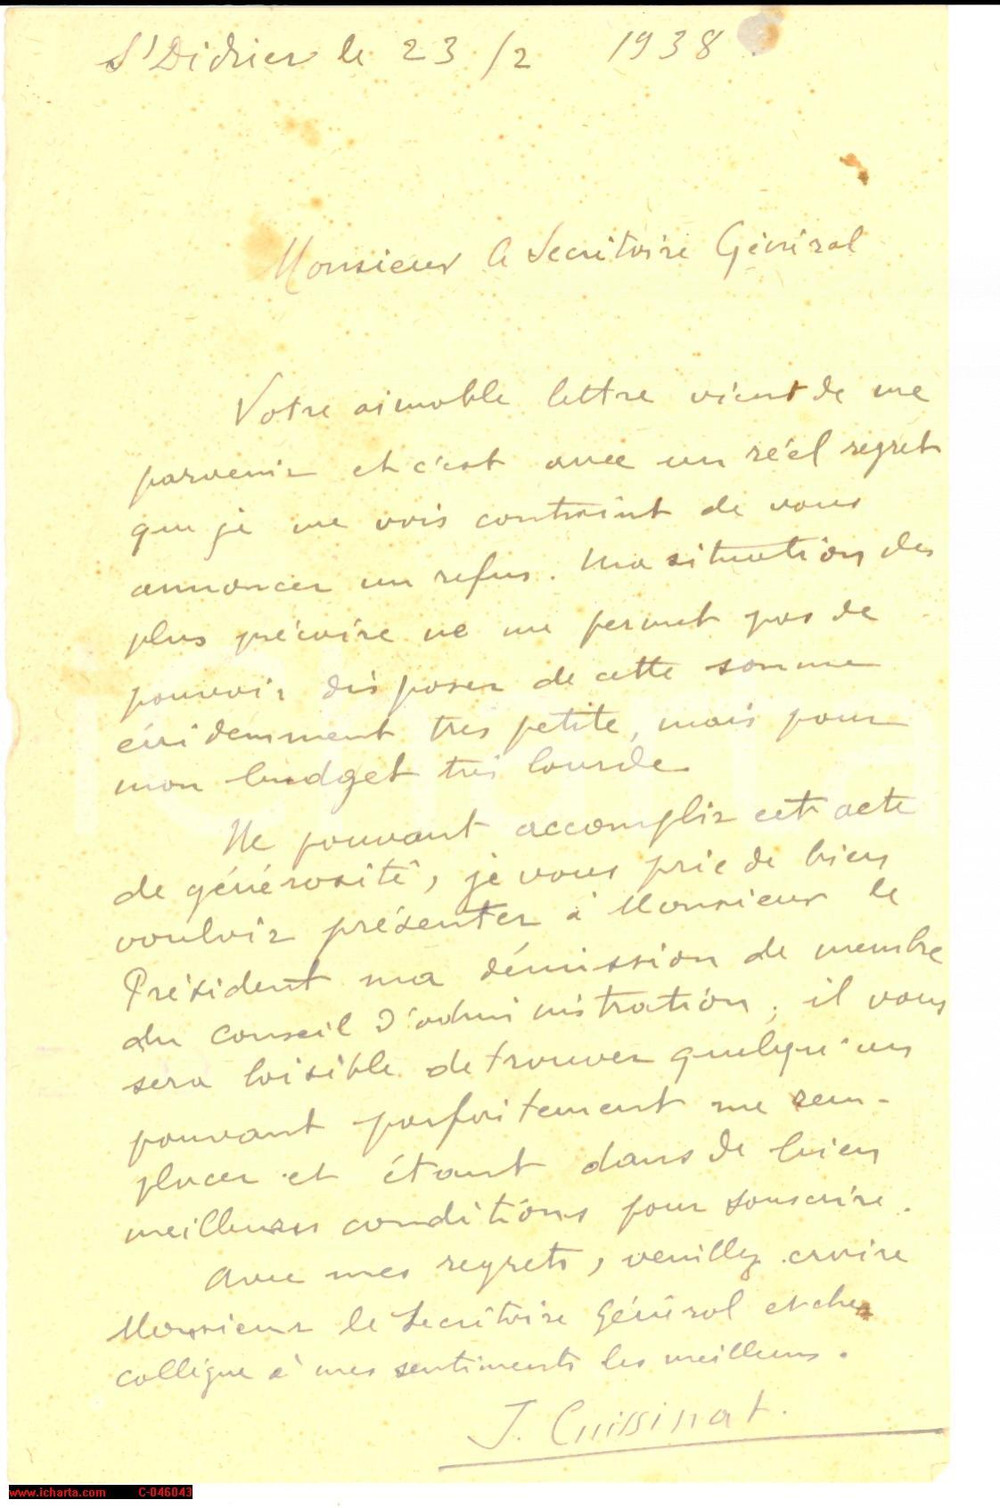 St Didier le 23/2 1938
Monsieur le Secrétaire Général
Votre aimable lettre vient de me
parvenir et c'est avec un réel regret
que je me vois contraint de vous
annoncer un refus. Ma situation des
plus précaire ne me permet pas de
pouvoir disposer de cette somme
évidemment très petite, mais pour
mon budget très lourde.
Ne pouvant accomplir cet acte
de générosité, je vous prie de bien
vouloir présenter à Monsieur le
Président ma démission de membre
du conseil d'administration; il vous
sera loisible de trouver quelqu'un
pouvant parfaitement me rem-
placer et étant dans de bien
meilleures conditions pour souscrire.
Avec mes regrets, veuillez croire
Monsieur le Secrétaire Général et cher
collègue à mes sentiments les meilleurs.
J. Cuissinat.
www.icharta.com C-046043